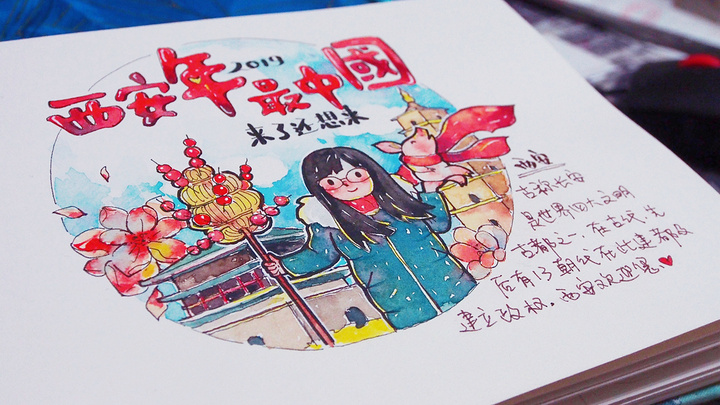 西安年 2019 最中國
来了还想来
西安
古称长安
是世界四大文明
古都之一.在古代,先
后有13朝代在此建都及
建立政权.西安欢迎您.♥